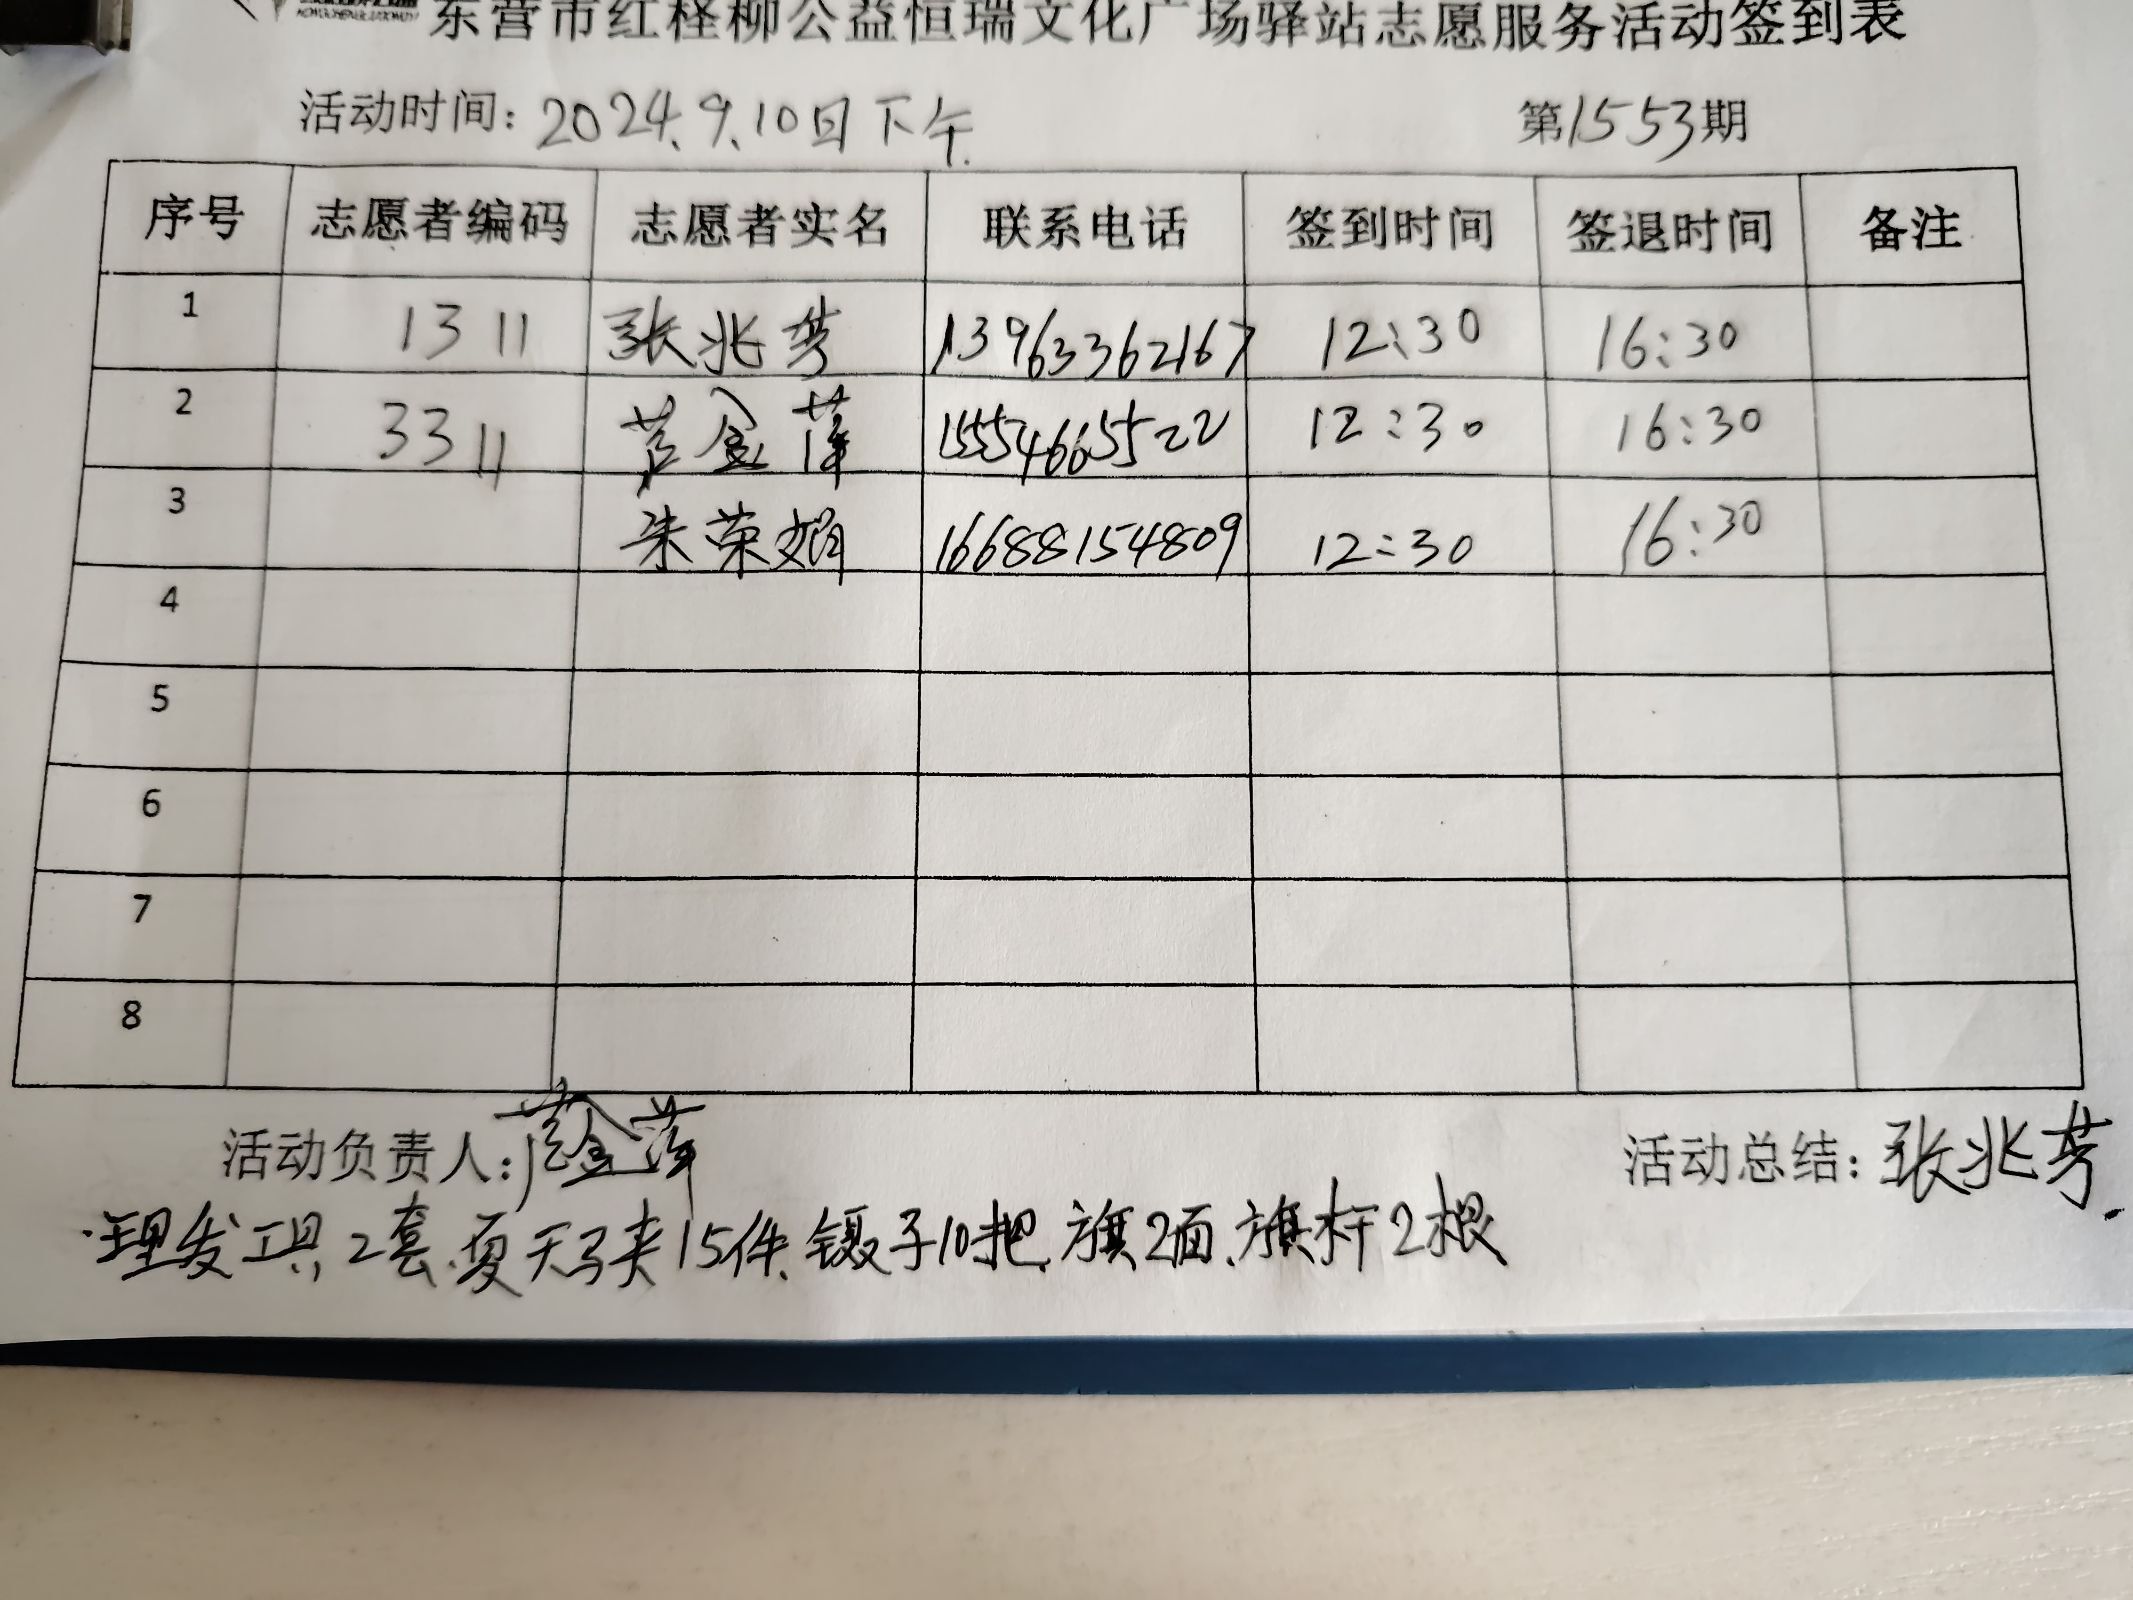 东营市红柽柳公益恒瑞文化广场驿站志愿服务活动签到表
活动时间：2024.9.10日下午. 第1553期
序号 志愿者编码 志愿者实名 联系电话 签到时间 签退时间 备注
1 1311 张兆芳 13963362167 12:30 16:30
2 3311 金萍 15554665522 12:30 16:30
3 朱荣娟 16688154809 12:30 16:30
4
5
6
7
8
活动负责人：金萍 活动总结：张兆芳.
理发工具2套.夏天马夹15件.镊子10把.旗2面.旗杆2根